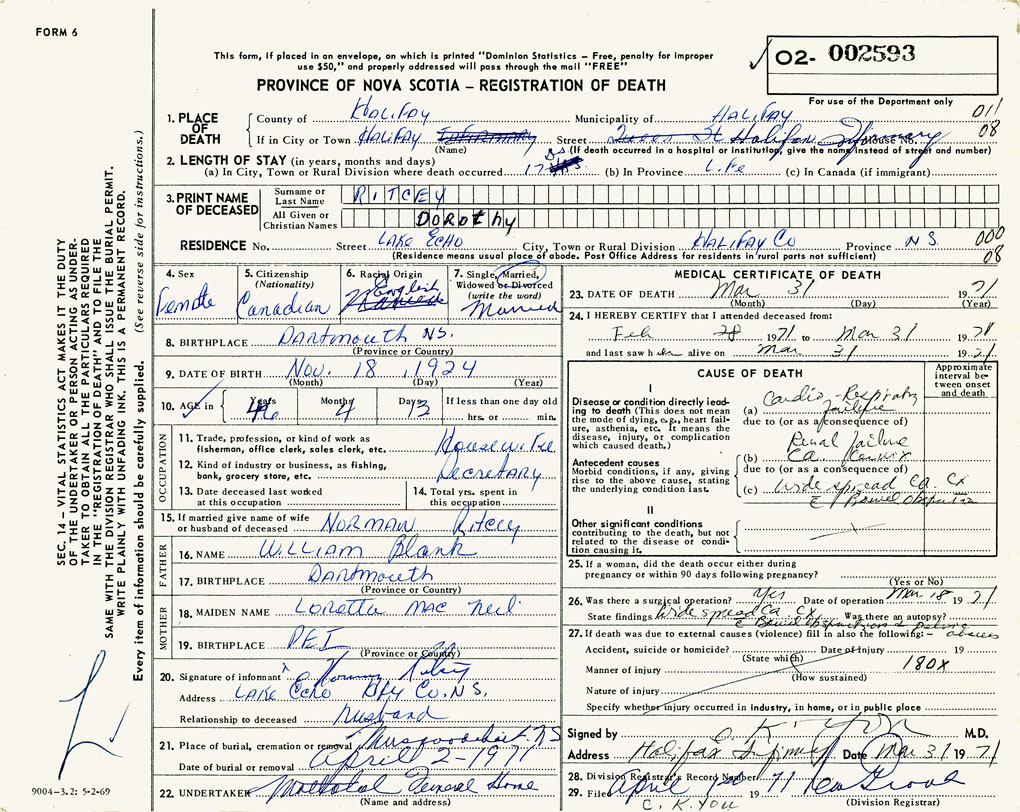 FORM 6
This form, if placed in an envelope, on which is printed "Dominion Statistics - Free, penalty for improper
use $50," and properly addressed will pass through the mail "FREE"
O2- 002593
PROVINCE OF NOVA SCOTIA – REGISTRATION OF DEATH
For use of the Department only
1. PLACE OF DEATH
County of Halifax Municipality of Halifax 011
If in City or Town Halifax Infirmary Street Queen St Halifax Infirmary House No. 08
(Name) (If death occurred in a hospital or institution, give the name instead of street and number)
2. LENGTH OF STAY (in years, months and days)
(a) In City, Town or Rural Division where death occurred 17 (b) In Province Life (c) In Canada (if immigrant)
3. PRINT NAME OF DECEASED
Surname or Last Name RITCEY
All Given or Christian Names DOROthy
RESIDENCE No. Street LAKE ECHO City, Town or Rural Division HALIFAX Co Province N S. 000
(Residence means usual place of abode. Post Office Address for residents in rural parts not sufficient) 08
4. Sex Female
5. Citizenship (Nationality) Canadian
6. Racial Origin English
7. Single, Married, Widowed or Divorced (write the word) Married
8. BIRTHPLACE Dartmouth NS.
(Province or Country)
9. DATE OF BIRTH Nov. 18, 1924
(Month) (Day) (Year)
10. AGE in Years 46 Months 4 Days 13 If less than one day old
hrs. or min.
OCCUPATION
11. Trade, profession, or kind of work as fisherman, office clerk, sales clerk, etc. Housewife
12. Kind of industry or business, as fishing, bank, grocery store, etc. Secretary
13. Date deceased last worked at this occupation
14. Total yrs. spent in this occupation
15. If married give name of wife or husband of deceased NORMAN Ritcey
FATHER
16. NAME William Blank
17. BIRTHPLACE Dartmouth
(Province or Country)
MOTHER
18. MAIDEN NAME Loretta Mac Neil
19. BIRTHPLACE P.E.I
(Province or Country)
20. Signature of informant Norman Ritcey
Address LAKE Echo Hfx Co. N.S.
Relationship to deceased husband
21. Place of burial, cremation or removal Musquodoboit NS
Date of burial or removal April 2-1971
22. UNDERTAKER Funeral Home
(Name and address)
MEDICAL CERTIFICATE OF DEATH
23. DATE OF DEATH Mar 31 1971
(Month) (Day) (Year)
24. I HEREBY CERTIFY that I attended deceased from:
Feb 28 1971 to Mar 31 1971
and last saw her alive on Mar 31 1971
CAUSE OF DEATH
Approximate interval between onset and death
I
Disease or condition directly leading to death (This does not mean the mode of dying, e.g., heart failure, asthenia, etc. It means the disease, injury, or complication which caused death.)
(a) Cardio-Respiratory failure
due to (or as a consequence of)
Renal failure
Antecedent causes
Morbid conditions, if any, giving rise to the above cause, stating the underlying condition last.
(b) Ca. Cervix
due to (or as a consequence of)
(c) Wide spread Ca. Cx
c Bowel obstruction
II
Other significant conditions
contributing to the death, but not related to the disease or condition causing it.
25. If a woman, did the death occur either during pregnancy or within 90 days following pregnancy?
(Yes or No)
26. Was there a surgical operation? Yes Date of operation Mar 18 1971
State findings Wide spread Ca Cx Was there an autopsy?
c Bowel obstruction & pelvic abscess
27. If death was due to external causes (violence) fill in also the following:–
Accident, suicide or homicide? Date of Injury 19
(State which)
Manner of injury 180X
(How sustained)
Nature of injury
Specify whether injury occurred in industry, in home, or in public place
Signed by M.D.
Address Halifax Infirmary Date Mar 31 1971
28. Division Registrar's Record Number
29. Filed April 1st 1971
C. K. You
(Division Registrar)
SEC. 14 – VITAL STATISTICS ACT MAKES IT THE DUTY
OF THE UNDERTAKER OR PERSON ACTING AS UNDERTAKER TO OBTAIN ALL THE PARTICULARS REQUIRED
IN THE "REGISTRATION OF DEATH" AND TO FILE THE
SAME WITH THE DIVISION REGISTRAR WHO SHALL ISSUE THE BURIAL PERMIT.
WRITE PLAINLY WITH UNFADING INK. THIS IS A PERMANENT RECORD.
Every item of information should be carefully supplied. (See reverse side for instructions.)
9004–3.2: 5-2-69